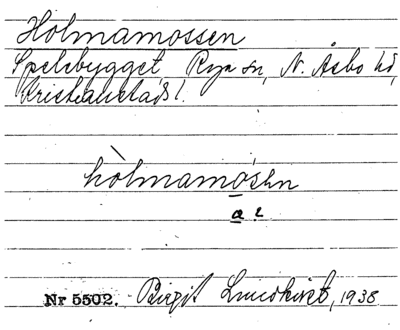 Holmamossen
Spelebygget Rya sn, N. Åsbo hd,
Kristianstads l.
hòlmamo̱sén
a̱ ?
Nr 5502. Birgit Lundkvist, 1938